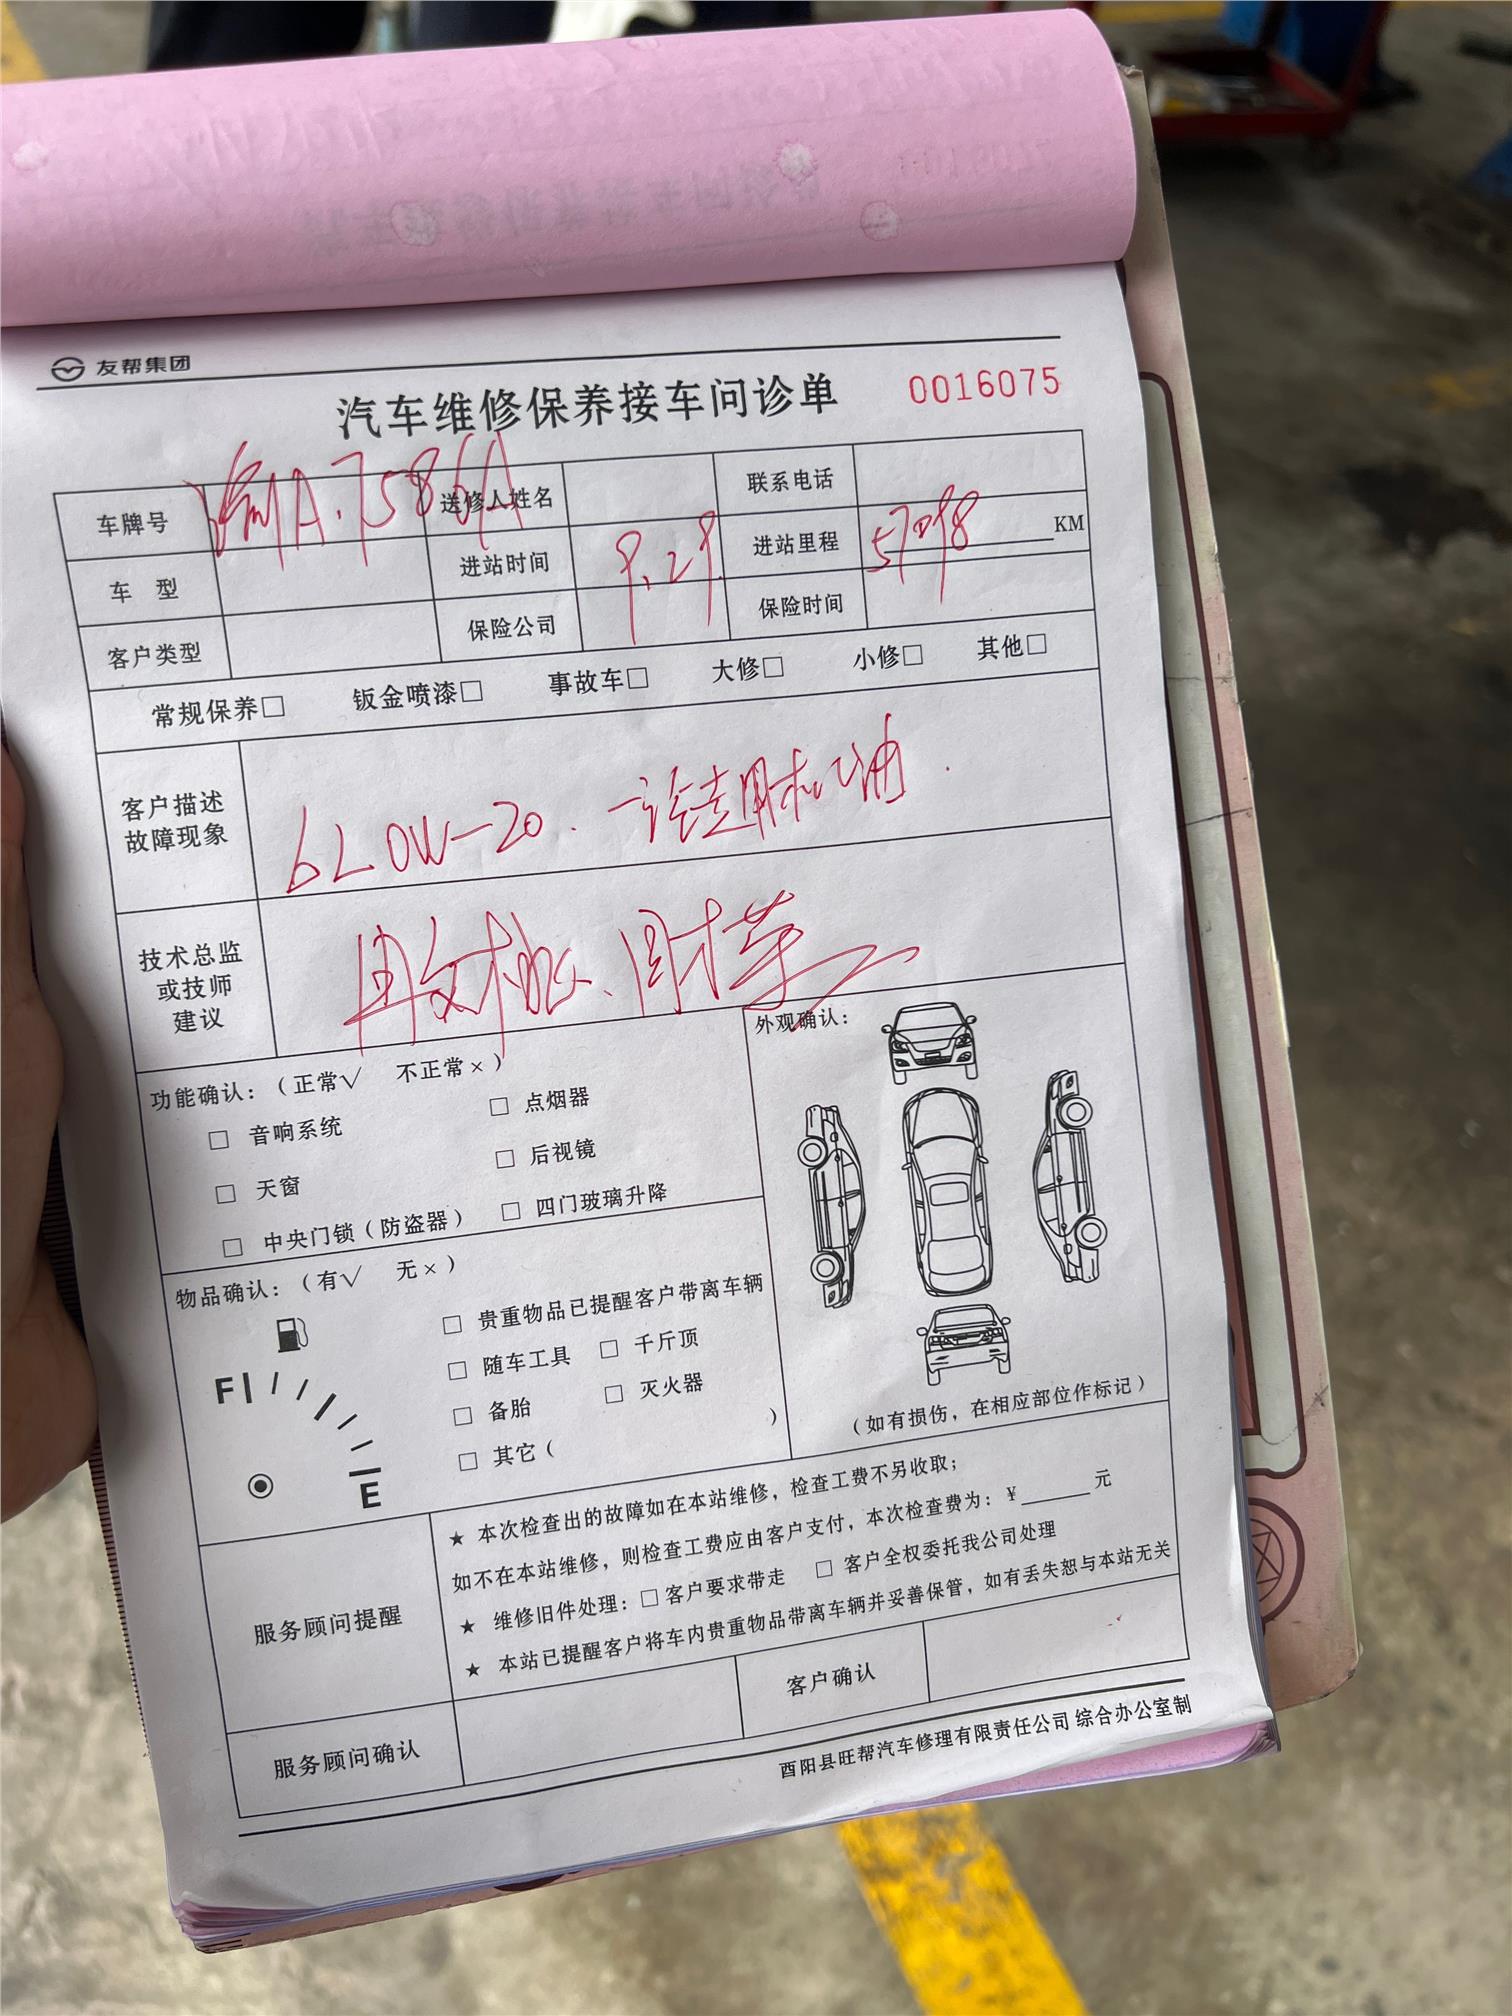 友帮集团
汽车维修保养接车问诊单 0016075
车牌号 渝A.7586A 送修人姓名 联系电话
车 型 进站时间 9.29 进站里程 57098 KM
客户类型 保险公司 保险时间
常规保养□ 钣金喷漆□ 事故车□ 大修□ 小修□ 其他□
客户描述
故障现象
6L 0W-20. 机油.
技术总监
或技师
建议
功能确认：（正常√ 不正常×）
□ 音响系统 □ 点烟器
□ 天窗 □ 后视镜
□ 中央门锁（防盗器） □ 四门玻璃升降
外观确认：
（如有损伤，在相应部位作标记）
物品确认：（有√ 无×）
F
E
□ 贵重物品已提醒客户带离车辆
□ 随车工具 □ 千斤顶
□ 备胎 □ 灭火器
□ 其它（ ）
服务顾问提醒
★ 本次检查出的故障如在本站维修，检查工费不另收取；
如不在本站维修，则检查工费应由客户支付，本次检查费为：¥______元
★ 维修旧件处理：□ 客户要求带走 □ 客户全权委托我公司处理
★ 本站已提醒客户将车内贵重物品带离车辆并妥善保管，如有丢失恕与本站无关
服务顾问确认 客户确认
酉阳县旺帮汽车修理有限责任公司 综合办公室制